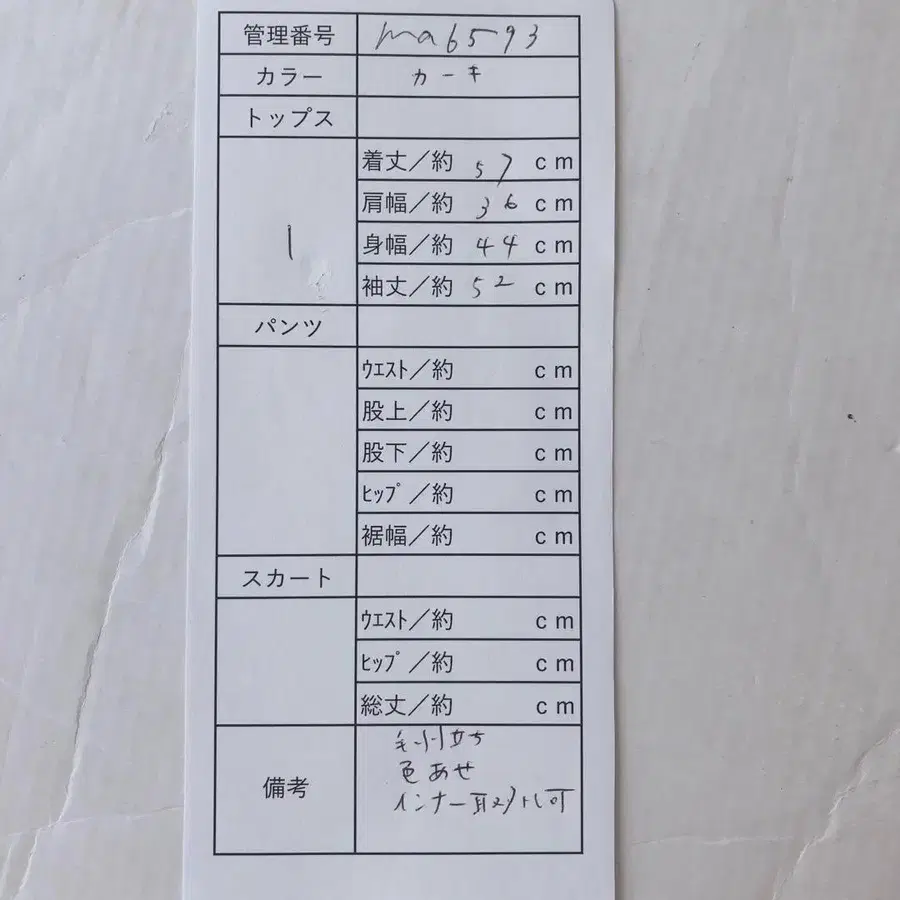 管理番号 ma6593
カラー カーキ
トップス
1
着丈／約 57 cm
肩幅／約 36 cm
身幅／約 44 cm
袖丈／約 52 cm
パンツ
ｳｴｽﾄ／約 cm
股上／約 cm
股下／約 cm
ﾋｯﾌﾟ／約 cm
裾幅／約 cm
スカート
ｳｴｽﾄ／約 cm
ﾋｯﾌﾟ／約 cm
総丈／約 cm
備考
毛羽立ち
色あせ
インナー取外し可